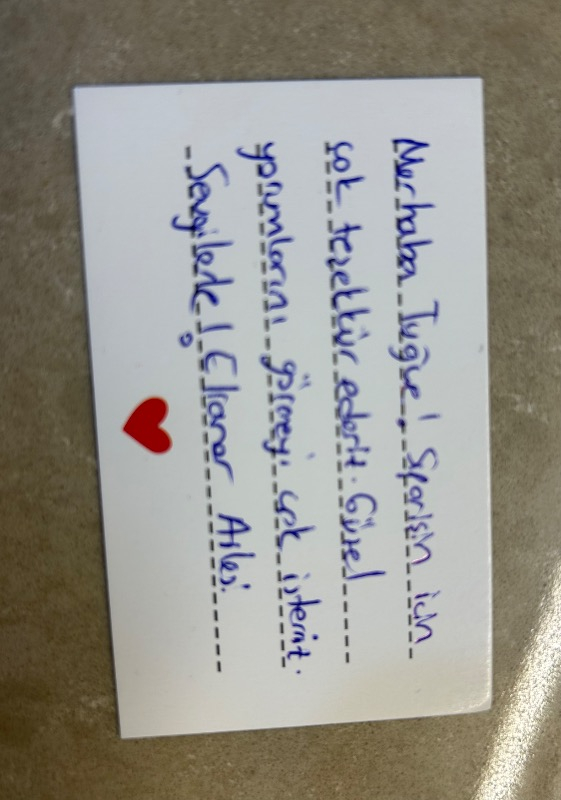 Merhaba Tuğçe! Siparişin için
çok teşekkür ederiz. Güzel
yorumlarını görmeyi çok isteriz.
Sevgilerle! Elianor Ailesi